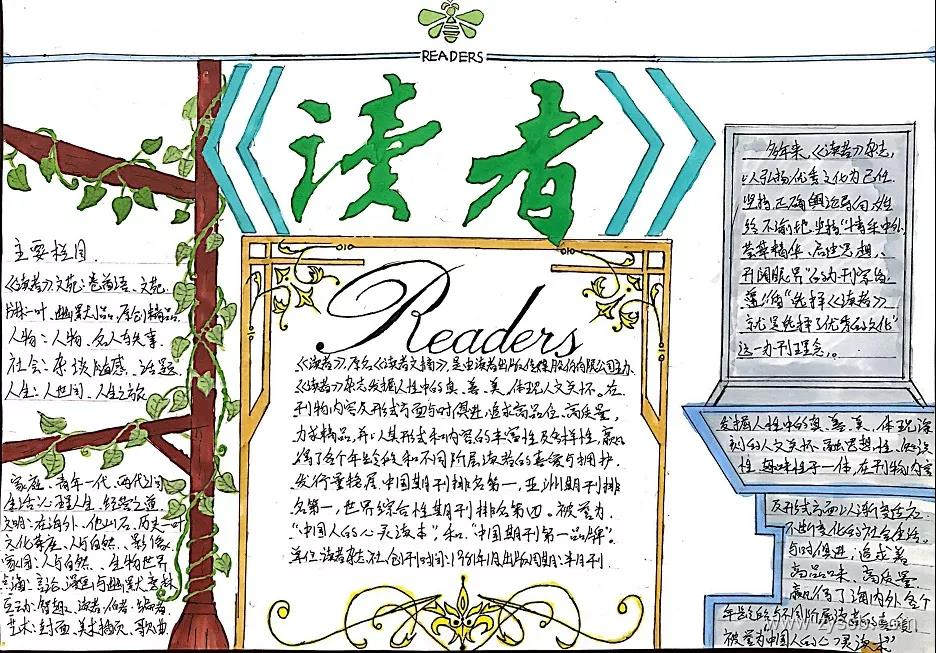 READERS
读者
主要栏目
《读者》文苑:卷首语、文苑、
幽默小品、原创精品
人物:人物、名人轶事
社会:杂谈随感、话题
人生:人世间、人生之旅
家庭、青年一代、两代之间
生活:心理人生、经营之道
文明:在海外、他山石、历史一叶
文化茶座、人与自然、影像
家园:人与自然、生物世界
点滴:言论、漫画与幽默、意林
互动:智趣、读者、作者、编者
艺术:封面、美术插页、歌曲
Readers
《读者》,原名《读者文摘》,是由读者出版传媒股份有限公司主办、
《读者》杂志发掘人性中的真、善、美,体现人文关怀。在
刊物内容及形式方面与时俱进,追求高品位、高质量,
力求精品,并以其形式和内容的丰富性及多样性,赢
得了各个年龄段和不同阶层读者的喜爱与拥护.
发行量稳居中国期刊排名第一,亚洲期刊排
名第一,世界综合性期刊排名第四.被誉为
"中国人的心灵读本",和"中国期刊第一品牌".
单位:读者杂志社,创刊时间:1981年1月,出版周期:半月刊
多年来,《读者》杂志,
以弘扬优秀文化为己任.
坚持正确舆论导向,始
终不渝地坚持"博采中外、
荟萃精华、启迪思想、
开阔眼界"的办刊宗旨
遵循"选择《读者》
就是选择了优秀的文化"
这一办刊理念。
发掘人性中的真、善、美,体现深
刻的人文关怀.融思想性、知识
性、趣味性于一体,在刊物内容
及形式方面以渐变适应
不断变化的社会生活.
与时俱进,追求着
高品味、高质量
赢得了海内外各个
年龄段的与不同阶层读者的喜爱
被誉为"中国人的心灵读本"